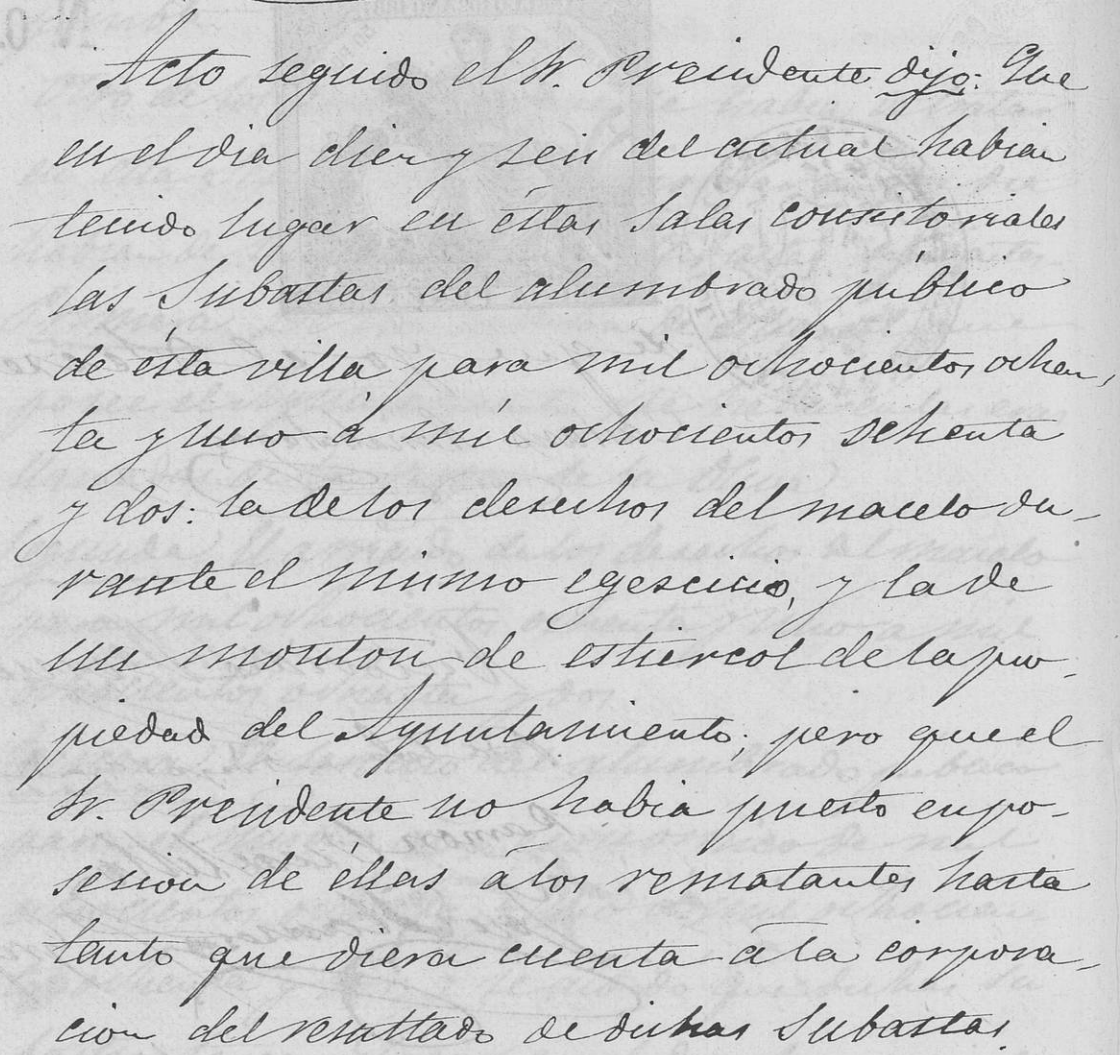 Acto seguido el Sr. Presidente dijo: Que
en el dia diez y seis del actual habian
tenido lugar en éstas Salas consistoriales
las Subastas del alumbrado público
de ésta villa para mil ochocientos ochen,
ta y uno á mil ochocientos ochenta
y dos: la de los desechos del macelo du-
rante el mismo egercicio, y la de
un monton de estiercol de la pro-
piedad del Ayuntamiento; pero que el
Sr. Presidente no habia puesto en po-
sesion de éllas á los rematantes hasta
tanto que diera cuenta á la corpora-
cion del resultado de dichas Subastas.